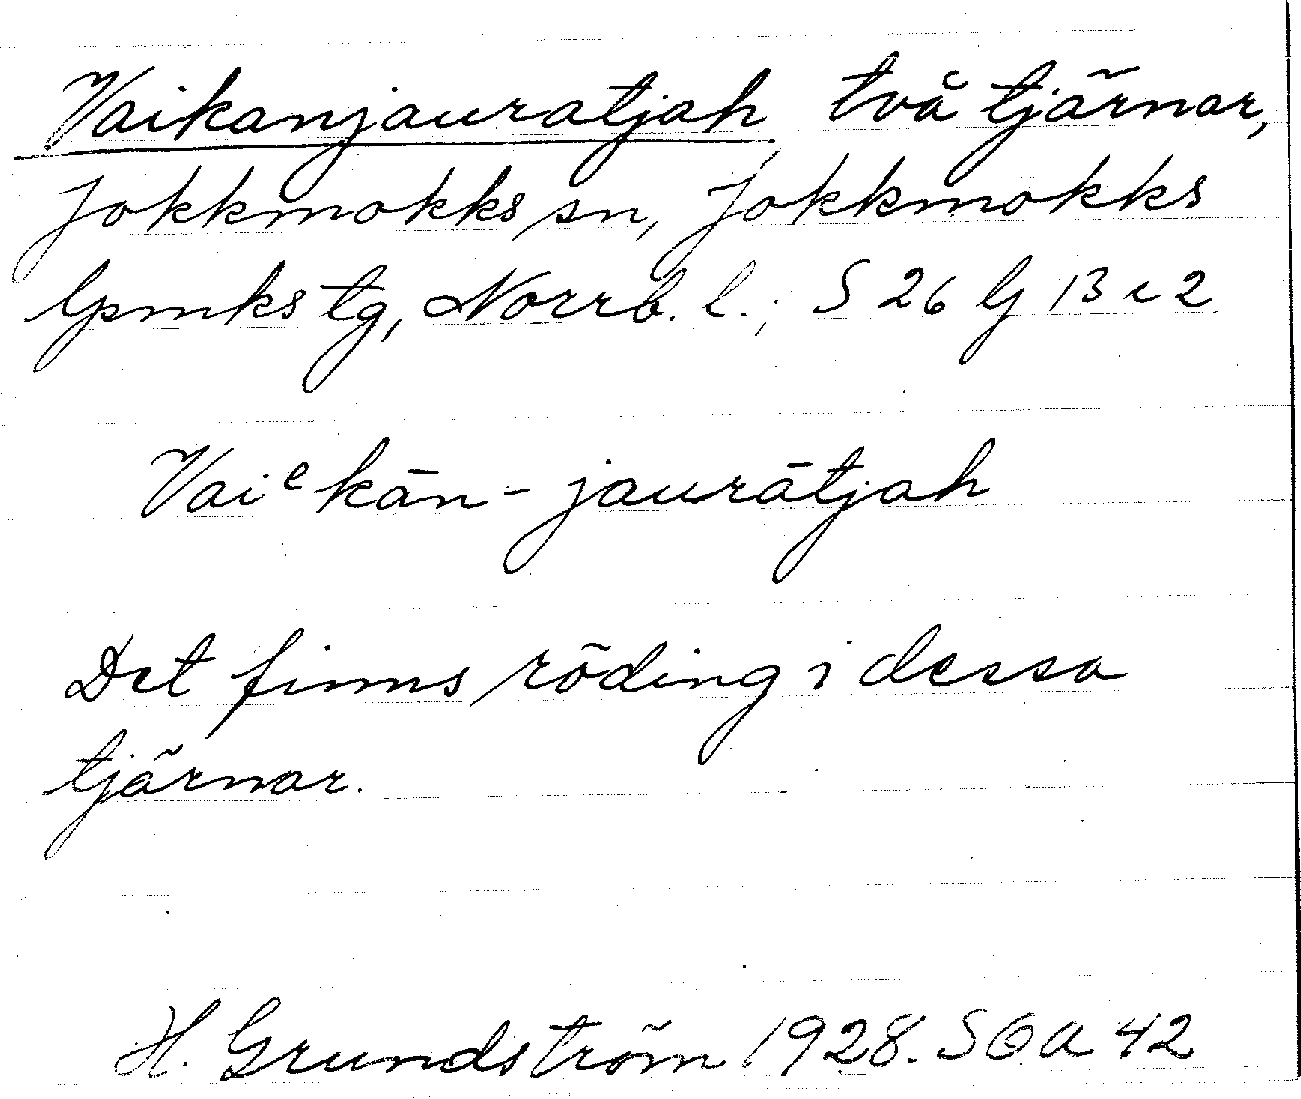 Vaikanjauratjah, två tjärnar,
Jokkmokks sn, Jokkmokks
lpmks tg, Norrb. l.; S 26 Ij 13 c 2
Vaiᵉkān-jaurātjah
Det finns röding i dessa
tjärnar.
H. Grundström 1928. SOA 42